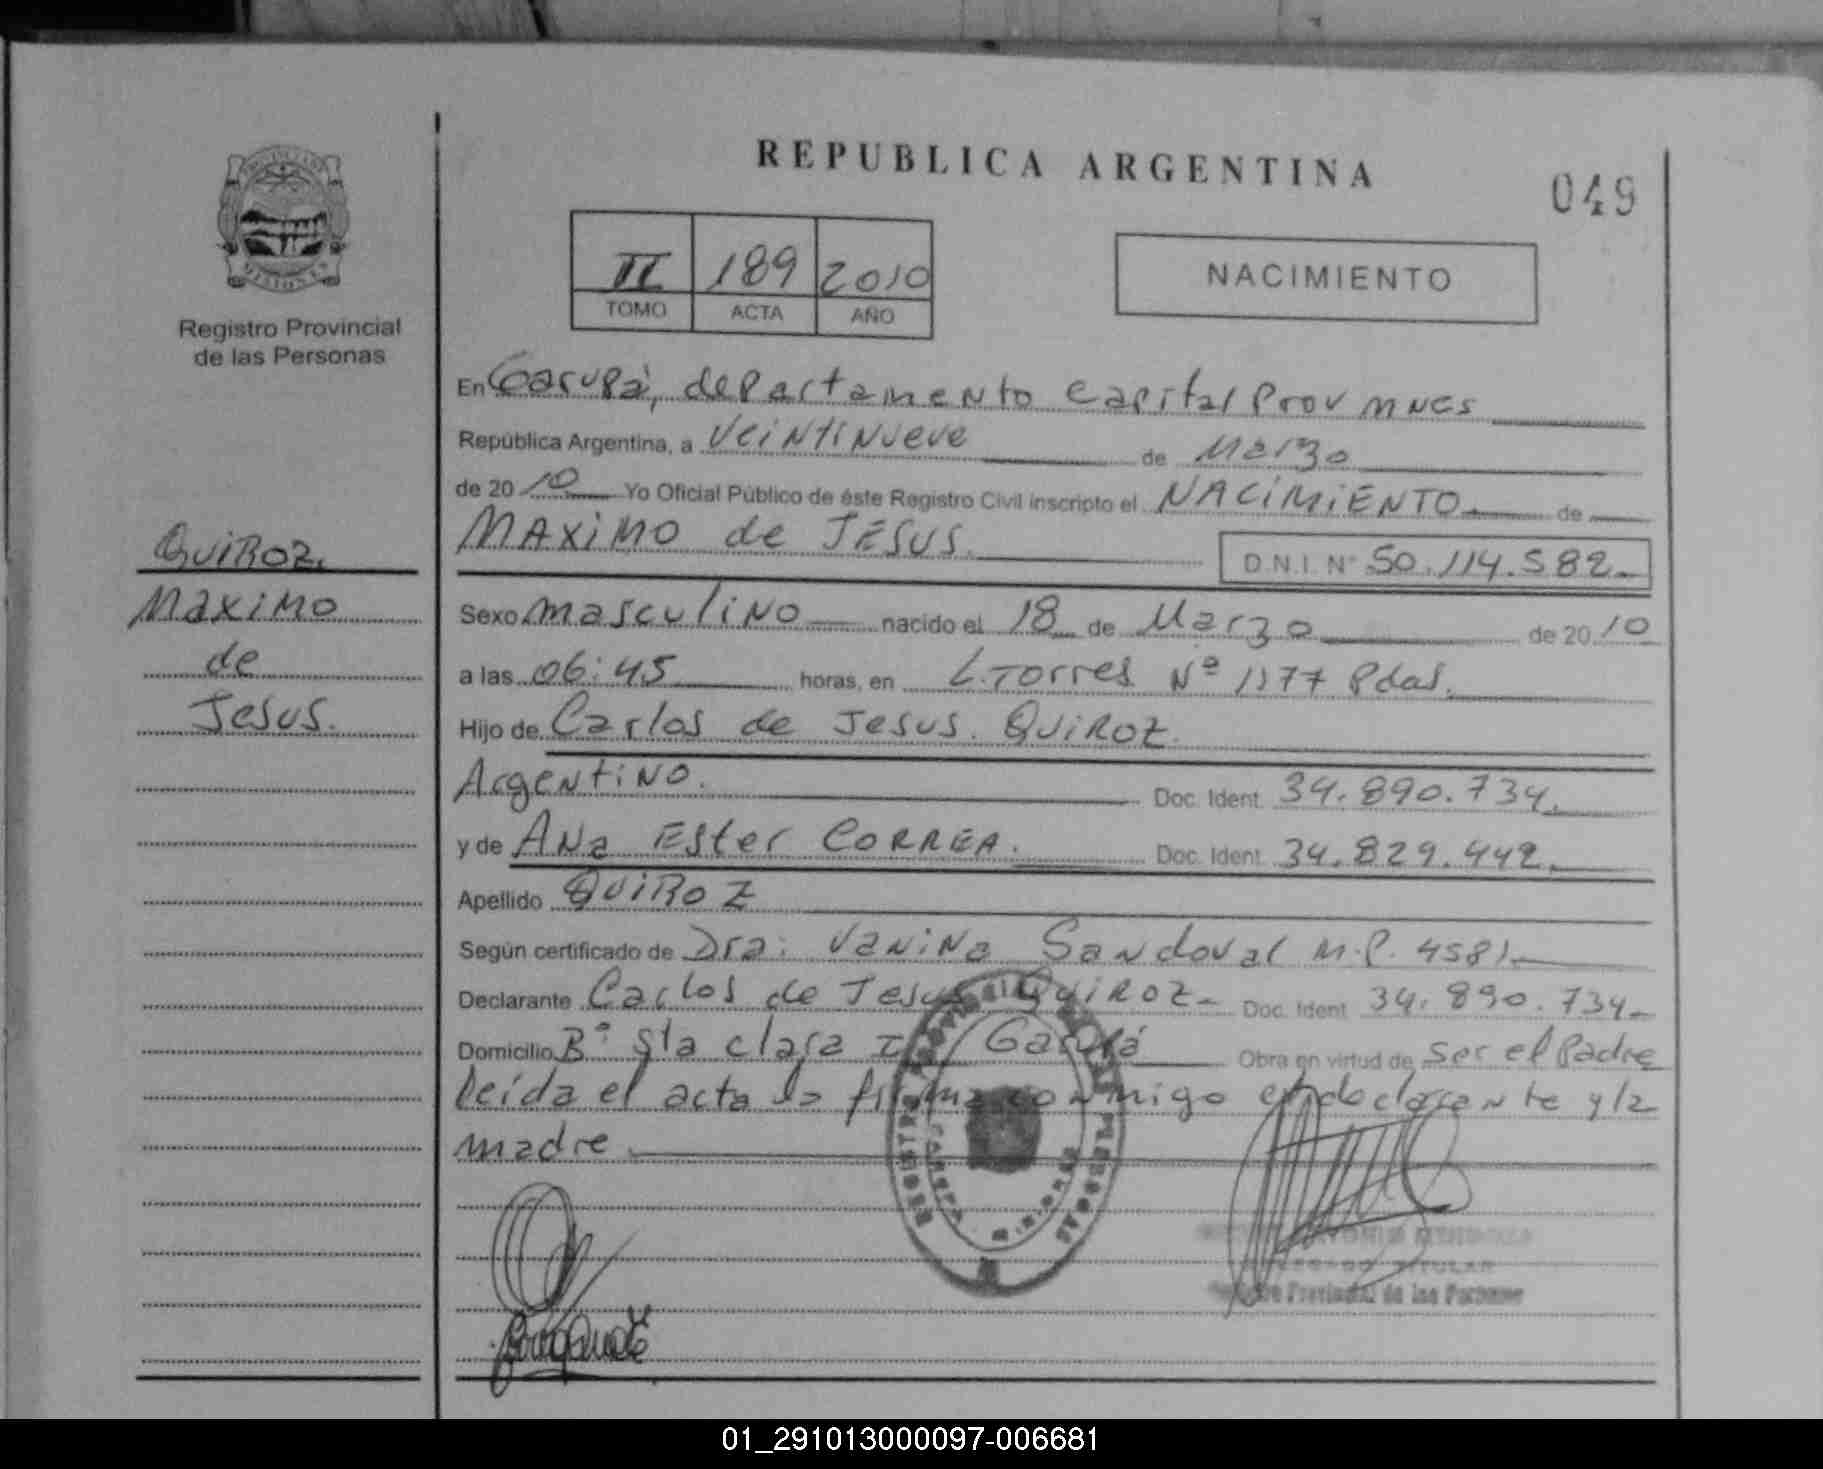 REPUBLICA ARGENTINA
049
PROVINCIA DE MISIONES
Registro Provincial
de las Personas
II 189 2010
TOMO ACTA AÑO
NACIMIENTO
En Garupá, departamento Capital Prov Mnes
República Argentina, a Veintinueve de Marzo
de 2010 Yo Oficial Público de éste Registro Civil inscripto el NACIMIENTO de
MAXIMO de JESUS. D.N.I. Nº 50.114.582
Sexo masculino nacido el 18 de Marzo de 2010
a las 06:45 horas, en L. Torres Nº 1177 Pdas.
Hijo de Carlos de Jesus. QUIROZ.
Argentino. Doc. Ident. 34.890.734.
y de Ana Ester CORREA. Doc. Ident. 34.829.442.
Apellido QUIROZ
Según certificado de Dra: Vanina Sandoval M.P. 4581
Declarante Carlos de Jesus QUIROZ Doc. Ident. 34.890.734
Domicilio Bº Sta Clara I Garupá Obra en virtud de ser el Padre
leída el acta la firma conmigo el declarante y la
madre
QUIROZ.
Maximo
de
Jesus.
REGISTRO PROVINCIAL DE LAS PERSONAS
GARUPA MISIONES
DELEGADO TITULAR
Registro Provincial de las Personas
01_291013000097-006681